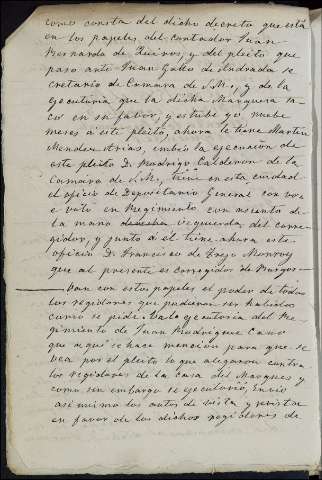 como consta del dicho decreto que está
en los papeles del contador Juan
Bernardo de Queiros, y del pleito que
paso ante Juan Gallo de Andrada se
cretario de Camara de S.M., y de la
ejecutoria que la dicha Marquesa sa
có en su favor, y estube yo nuebe
meses a este pleito, ahora le tiene Martin
Mendez Arias, embió la ejecucion de
este pleito D. Rodrigo Calderon de la
Camara de S.M., tiene en esta ciudad
el oficio de Depositario General con voz
e voto en Regimiento con asiento de
la mano derecha izquierda, del corre
gidor, y junto a él tiene ahora este
oficio D. Francisco de Trejo Monroy
que al presente es corregidor de Burgos
Van con estos papeles el poder de todos
los regidores que pudieron ser habidos
como se pidió la ejecutoria del Re
gimiento de Juan Rodriguez Cano
que aqui se hace mencion para que se
vea por el pleito lo que alegaron contra
los regidores de la casa del Marques y
como sin embargo se ejecutorió, envio
asimismo los autos de vista y revista
en favor de los dichos regidores de